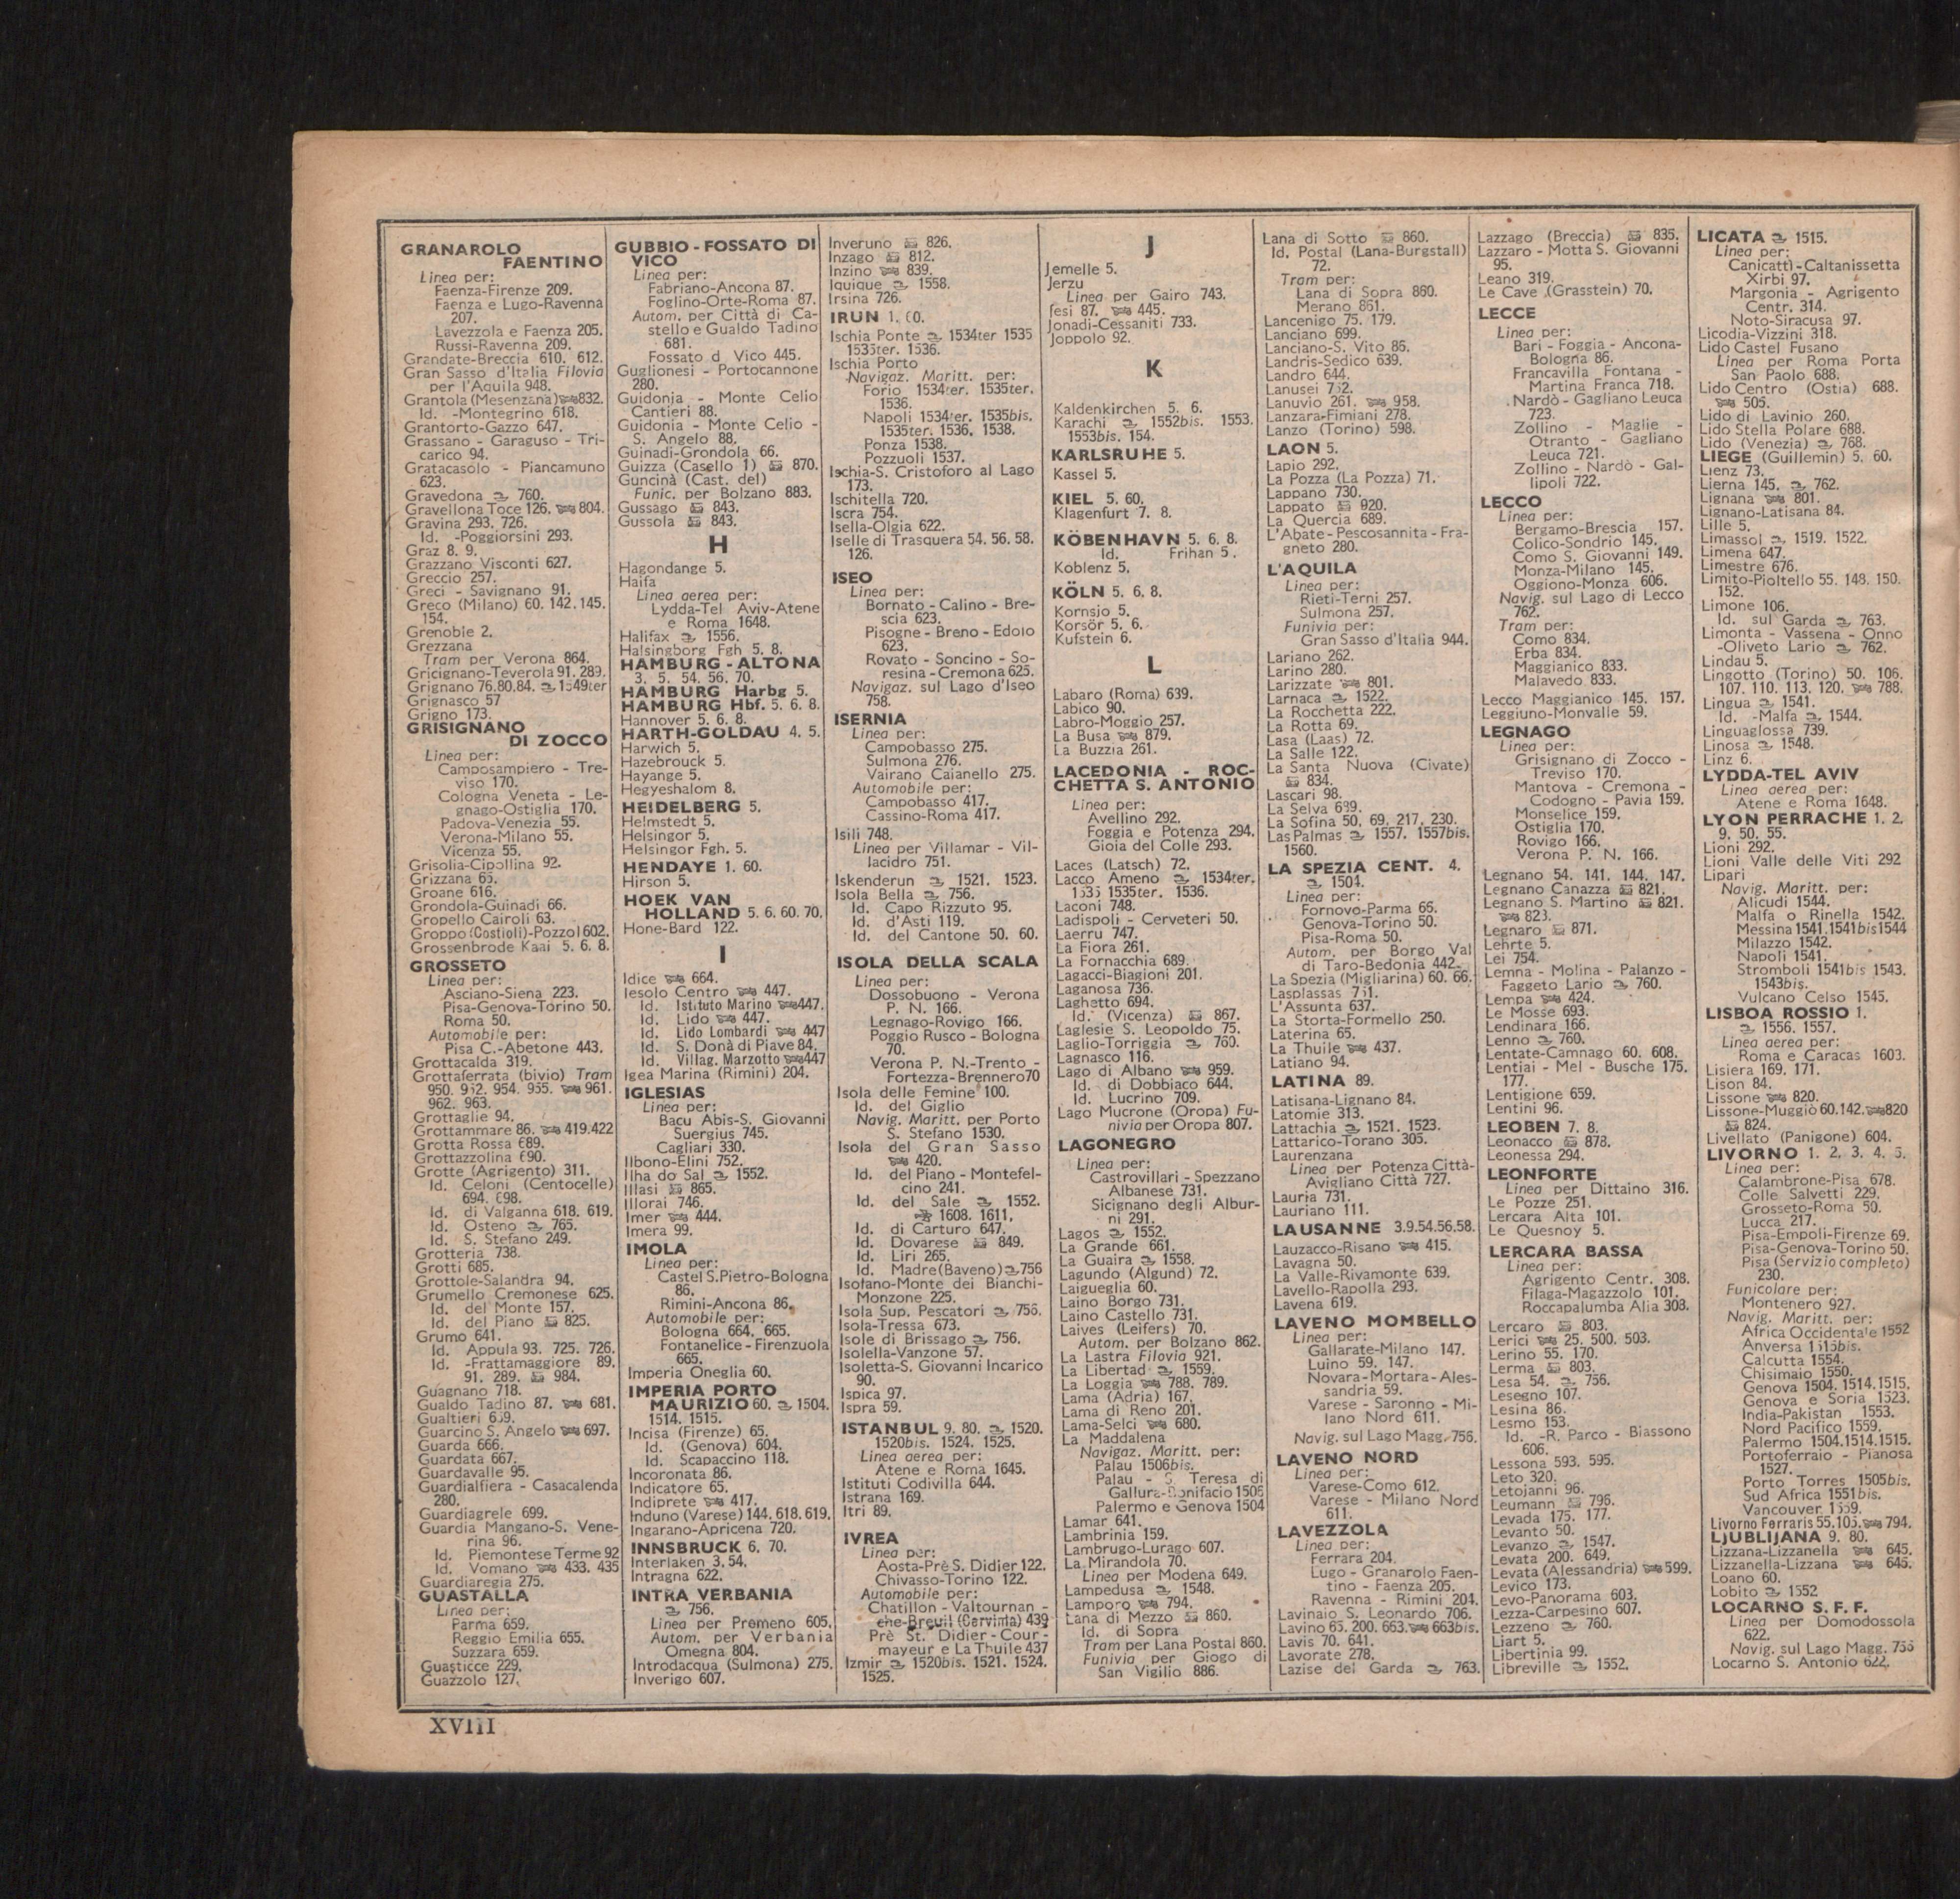 GRANAROLO
FAENTINO
Linea per:
Faenza-Firenze 209.
Faenza e Lugo-Ravenna
207.
Lavezzola e Faenza 205.
Russi-Ravenna 209.
Grandate-Breccia 610. 612.
Gran Sasso d'Italia Filovia
per l'Aquila 948.
Grantola (Mesenzana) 832.
Id. -Montegrino 618.
Grantorto-Gazzo 647.
Grassano - Garaguso - Tri-
carico 94.
Gratacasolo - Piancamuno
623.
Gravedona 760.
Gravellona Toce 126. 804.
Gravina 293. 726.
Id. -Poggiorsini 293.
Graz 8. 9.
Grazzano Visconti 627.
Greccio 257.
Greci - Savignano 91.
Greco (Milano) 60. 142. 145.
154.
Grenoble 2.
Grezzana
Tram per Verona 864.
Gricignano-Teverola 91. 289.
Grignano 76.80.84. 1549ter
Grignasco 57
Grigno 173.
GRISIGNANO
DI ZOCCO
Linea per:
Camposampiero - Tre-
viso 170.
Cologna Veneta - Le-
gnago-Ostiglia 170.
Padova-Venezia 55.
Verona-Milano 55.
Vicenza 55.
Grisolia-Cipollina 92.
Grizzana 65.
Groane 616.
Grondola-Guinadi 66.
Gropello Cairoli 63.
Groppo (Costioli)-Pozzol 602.
Grossenbrode Kaai 5. 6. 8.
GROSSETO
Linea per:
Asciano-Siena 223.
Pisa-Genova-Torino 50.
Roma 50.
Automobile per:
Pisa C.-Abetone 443.
Grottacalda 319.
Grottaferrata (bivio) Tram
950. 952. 954. 955. 961.
962. 963.
Grottaglie 94.
Grottammare 86. 419.422
Grotta Rossa 689.
Grottazzolina 690.
Grotte (Agrigento) 311.
Id. Celoni (Centocelle)
694. 698.
Id. di Valganna 618. 619.
Id. Osteno 765.
Id. S. Stefano 249.
Grotteria 738.
Grotti 685.
Grottole-Salandra 94.
Grumello Cremonese 625.
Id. del Monte 157.
Id. del Piano 825.
Grumo 641.
Id. Appula 93. 725. 726.
Id. -Frattamaggiore 89.
91. 289. 984.
Guagnano 718.
Gualdo Tadino 87. 681.
Gualtieri 659.
Guarcino S. Angelo 697.
Guarda 666.
Guardata 667.
Guardavalle 95.
Guardialfiera - Casacalenda
280.
Guardiagrele 699.
Guardia Mangano-S. Vene-
rina 96.
Id. Piemontese Terme 92
Id. Vomano 433. 435
Guardiaregia 275.
GUASTALLA
Linea per:
Parma 659.
Reggio Emilia 655.
Suzzara 659.
Guasticce 229.
Guazzolo 127.
GUBBIO - FOSSATO DI
VICO
Linea per:
Fabriano-Ancona 87.
Foglino-Orte-Roma 87.
Autom. per Città di Ca-
stello e Gualdo Tadino
681.
Fossato d Vico 445.
Guglionesi - Portocannone
280.
Guidonia - Monte Celio
Cantieri 88.
Guidonia - Monte Celio -
S. Angelo 88.
Guinadi-Grondola 66.
Guizza (Casello 1) 870.
Guncinà (Cast. del)
Funic. per Bolzano 883.
Gussago 843.
Gussola 843.
H
Hagondange 5.
Haifa
Linea aerea per:
Lydda-Tel Aviv-Atene
e Roma 1648.
Halifax 1556.
Halsingborg Fgh 5. 8.
HAMBURG - ALTONA
3. 5. 54. 56. 70.
HAMBURG Harbg 5.
HAMBURG Hbf. 5. 6. 8.
Hannover 5. 6. 8.
HARTH-GOLDAU 4. 5.
Harwich 5.
Hazebrouck 5.
Hayange 5.
Hegyeshalom 8.
HEIDELBERG 5.
Helmstedt 5.
Helsingor 5.
Helsingor Fgh. 5.
HENDAYE 1. 60.
Hirson 5.
HOEK VAN
HOLLAND 5. 6. 60. 70.
Hone-Bard 122.
I
Idice 664.
Iesolo Centro 447.
Id. Istituto Marino 447.
Id. Lido 447.
Id. Lido Lombardi 447
Id. S. Donà di Piave 84.
Id. Villag. Marzotto 447
Igea Marina (Rimini) 204.
IGLESIAS
Linea per:
Bacu Abis-S. Giovanni
Suergius 745.
Cagliari 330.
Ilbono-Elini 752.
Ilha do Sal 1552.
Illasi 865.
Illorai 746.
Imer 444.
Imera 99.
IMOLA
Linea per:
Castel S.Pietro-Bologna
86.
Rimini-Ancona 86.
Automobile per:
Bologna 664. 665.
Fontanelice - Firenzuola
665.
Imperia Oneglia 60.
IMPERIA PORTO
MAURIZIO 60. 1504.
1514. 1515.
Incisa (Firenze) 65.
Id. (Genova) 604.
Id. Scapaccino 118.
Incoronata 86.
Indicatore 65.
Indiprete 417.
Induno (Varese) 144. 618. 619.
Ingarano-Apricena 720.
INNSBRUCK 6. 70.
Interlaken 3. 54.
Intragna 622.
INTRA VERBANIA
756.
Linea per Premeno 605.
Autom. per Verbania
Omegna 804.
Introdacqua (Sulmona) 275.
Inverigo 607.
Inveruno 826.
Inzago 812.
Inzino 839.
Iquique 1558.
Irsina 726.
IRUN 1. 60.
Ischia Ponte 1534ter 1535
1535ter. 1536.
Ischia Porto
Navigaz. Maritt. per:
Forio 1534ter. 1535ter.
1536.
Napoli 1534ter. 1535bis.
1535ter. 1536. 1538.
Ponza 1538.
Pozzuoli 1537.
Ischia-S. Cristoforo al Lago
173.
Ischitella 720.
Iscra 754.
Isella-Olgia 622.
Iselle di Trasquera 54. 56. 58.
126.
ISEO
Linea per:
Bornato - Calino - Bre-
scia 623.
Pisogne - Breno - Edolo
623.
Rovato - Soncino - So-
resina - Cremona 625.
Navigaz. sul Lago d'Iseo
758.
ISERNIA
Linea per:
Campobasso 275.
Sulmona 276.
Vairano Caianello 275.
Automobile per:
Campobasso 417.
Cassino-Roma 417.
Isili 748.
Linea per Villamar - Vil-
lacidro 751.
Iskenderun 1521. 1523.
Isola Bella 756.
Id. Capo Rizzuto 95.
Id. d'Asti 119.
Id. del Cantone 50. 60.
ISOLA DELLA SCALA
Linea per:
Dossobuono - Verona
P. N. 166.
Legnago-Rovigo 166.
Poggio Rusco - Bologna
70.
Verona P. N.-Trento -
Fortezza-Brennero 70
Isola delle Femine 100.
Id. del Giglio
Navig. Maritt. per Porto
S. Stefano 1530.
Isola del Gran Sasso
420.
Id. del Piano - Montefel-
cino 241.
Id. del Sale 1552.
1608. 1611.
Id. di Carturo 647.
Id. Dovarese 849.
Id. Liri 265.
Id. Madre (Baveno) 756
Isolano-Monte dei Bianchi-
Monzone 225.
Isola Sup. Pescatori 756.
Isola-Tressa 673.
Isole di Brissago 756.
Isolella-Vanzone 57.
Isoletta-S. Giovanni Incarico
90.
Ispica 97.
Ispra 59.
ISTANBUL 9. 80. 1520.
1520bis. 1524. 1525.
Linea aerea per:
Atene e Roma 1645.
Istituti Codivilla 644.
Istrana 169.
Itri 89.
IVREA
Linea per:
Aosta-Prè S. Didier 122.
Chivasso-Torino 122.
Automobile per:
Chatillon - Valtournan -
che-Breuil (Cervinia) 439
Prè St. Didier - Cour -
mayeur e La Thuile 437
Izmir 1520bis. 1521. 1524.
1525.
J
Jemelle 5.
Jerzu
Linea per Gairo 743.
Jesi 87. 445.
Jonadi-Cessaniti 733.
Joppolo 92.
K
Kaldenkirchen 5. 6.
Karachi 1552bis. 1553.
1553bis. 154.
KARLSRUHE 5.
Kassel 5.
KIEL 5. 60.
Klagenfurt 7. 8.
KÖBENHAVN 5. 6. 8.
Id. Frihan 5.
Koblenz 5.
KÖLN 5. 6. 8.
Kornsio 5.
Korsör 5. 6.
Kufstein 6.
L
Labaro (Roma) 639.
Labico 90.
Labro-Moggio 257.
La Busa 879.
La Buzzia 261.
LACEDONIA - ROC-
CHETTA S. ANTONIO
Linea per:
Avellino 292.
Foggia e Potenza 294.
Gioia del Colle 293.
Laces (Latsch) 72.
Lacco Ameno 1534ter.
1535 1535ter. 1536.
Laconi 748.
Ladispoli - Cerveteri 50.
Laerru 747.
La Fiora 261.
La Fornacchia 689.
Lagacci-Biagioni 201.
Laganosa 736.
Laghetto 694.
Id. (Vicenza) 867.
Laglesie S. Leopoldo 75.
Laglio-Torriggia 760.
Lagnasco 116.
Lago di Albano 959.
Id. di Dobbiaco 644.
Id. Lucrino 709.
Lago Mucrone (Oropa) Fu-
nivia per Oropa 807.
LAGONEGRO
Linea per:
Castrovillari - Spezzano
Albanese 731.
Sicignano degli Albur-
ni 291.
Lagos 1552.
La Grande 661.
La Guaira 1558.
Lagundo (Algund) 72.
Laigueglia 60.
Laino Borgo 731.
Laino Castello 731.
Laives (Leifers) 70.
Autom. per Bolzano 862.
La Lastra Filovia 921.
La Libertad 1559.
La Loggia 788. 789.
Lama (Adria) 167.
Lama di Reno 201.
Lama-Selci 680.
La Maddalena
Navigaz. Maritt. per:
Palau 1506bis.
Palau - S. Teresa di
Gallura-Bonifacio 1506
Palermo e Genova 1504
Lamar 641.
Lambrinia 159.
Lambrugo-Lurago 607.
La Mirandola 70.
Linea per Modena 649.
Lampedusa 1548.
Lamporo 794.
Lana di Mezzo 860.
Id. di Sopra
Tram per Lana Postal 860.
Funivia per Giogo di
San Vigilio 886.
Lana di Sotto 860.
Id. Postal (Lana-Burgstall)
72.
Tram per:
Lana di Sopra 860.
Merano 861.
Lancenigo 75. 179.
Lanciano 699.
Lanciano-S. Vito 86.
Landris-Sedico 639.
Landro 644.
Lanusei 752.
Lanuvio 261. 958.
Lanzara-Fimiani 278.
Lanzo (Torino) 598.
LAON 5.
Lapio 292.
La Pozza (La Pozza) 71.
Lappano 730.
Lappato 920.
La Quercia 689.
L'Abate - Pescosannita - Fra-
gneto 280.
L'AQUILA
Linea per:
Rieti-Terni 257.
Sulmona 257.
Funivia per:
Gran Sasso d'Italia 944.
Lariano 262.
Larino 280.
Larizzate 801.
Larnaca 1522.
La Rocchetta 222.
La Rotta 69.
Lasa (Laas) 72.
La Salle 122.
La Santa Nuova (Civate)
834.
Lascari 98.
La Selva 699.
La Sofina 50. 69. 217. 230.
Las Palmas 1557. 1557bis.
1560.
LA SPEZIA CENT. 4.
1504.
Linea per:
Fornovo-Parma 66.
Genova-Torino 50.
Pisa-Roma 50.
Autom. per Borgo Val
di Taro-Bedonia 442.
La Spezia (Migliarina) 60. 66.
Lasplassas 751.
L'Assunta 637.
La Storta-Formello 250.
Laterina 65.
La Thuile 437.
Latiano 94.
LATINA 89.
Latisana-Lignano 84.
Latomie 313.
Lattachia 1521. 1523.
Lattarico-Torano 305.
Laurenzana
Linea per Potenza Città-
Avigliano Città 727.
Lauria 731.
Lauriano 111.
LAUSANNE 3.9.54.56.58.
Lauzacco-Risano 415.
Lavagna 50.
La Valle-Rivamonte 639.
Lavello-Rapolla 293.
Lavena 619.
LAVENO MOMBELLO
Linea per:
Gallarate-Milano 147.
Luino 59. 147.
Novara-Mortara-Ales-
sandria 59.
Varese - Saronno - Mi-
lano Nord 611.
Navig. sul Lago Magg. 756.
LAVENO NORD
Linea per:
Varese-Como 612.
Varese - Milano Nord
611.
LAVEZZOLA
Linea per:
Ferrara 204.
Lugo - Granarolo Faen-
tino - Faenza 205.
Ravenna - Rimini 204.
Lavinaio S. Leonardo 706.
Lavino 65. 200. 663. 663bis.
Lavis 70. 641.
Lavorate 278.
Lazise del Garda 763.
Lazzago (Breccia) 835.
Lazzaro - Motta S. Giovanni
95.
Leano 319.
Le Cave (Grasstein) 70.
LECCE
Linea per:
Bari - Foggia - Ancona-
Bologna 86.
Francavilla Fontana -
Martina Franca 718.
Nardò - Gagliano Leuca
723.
Zollino - Maglie -
Otranto - Gagliano
Leuca 721.
Zollino - Nardò - Gal-
lipoli 722.
LECCO
Linea per:
Bergamo-Brescia 157.
Colico-Sondrio 145.
Como S. Giovanni 149.
Monza-Milano 145.
Oggiono-Monza 606.
Navig. sul Lago di Lecco
762.
Tram per:
Como 834.
Erba 834.
Maggianico 833.
Malavedo 833.
Lecco Maggianico 145. 157.
Leggiuno-Monvalle 59.
LEGNAGO
Linea per:
Grisignano di Zocco -
Treviso 170.
Mantova - Cremona -
Codogno - Pavia 159.
Monselice 159.
Ostiglia 170.
Rovigo 166.
Verona P. N. 166.
Legnano 54. 141. 144. 147.
Legnano Canazza 821.
Legnano S. Martino 821.
823.
Legnaro 871.
Lehrte 5.
Lei 754.
Lemna - Molina - Palanzo -
Faggeto Lario 760.
Lempa 424.
Le Mosse 693.
Lendinara 166.
Lenno 760.
Lentate-Camnago 60. 608.
Lentiai - Mel - Busche 175.
177.
Lentigione 659.
Lentini 96.
LEOBEN 7. 8.
Leonacco 878.
Leonessa 294.
LEONFORTE
Linea per Dittaino 316.
Le Pozze 251.
Lercara Alta 101.
Le Quesnoy 5.
LERCARA BASSA
Linea per:
Agrigento Centr. 308.
Filaga-Magazzolo 101.
Roccapalumba Alia 308.
Lercaro 803.
Lerici 25. 500. 503.
Lerino 55. 170.
Lerma 803.
Lesa 54. 756.
Lesegno 107.
Lesina 86.
Lesmo 153.
Id. -R. Parco - Biassono
606.
Lessona 593. 595.
Leto 320.
Letojanni 96.
Leumann 796.
Levada 175. 177.
Levanto 50.
Levanzo 1547.
Levata 200. 649.
Levata (Alessandria) 599.
Levico 173.
Levo-Panorama 603.
Lezza-Carpesino 607.
Lezzeno 760.
Liart 5.
Libertinia 99.
Libreville 1552.
LICATA 1515.
Linea per:
Canicattì-Caltanissetta
Xirbi 97.
Margonia - Agrigento
Centr. 314.
Noto-Siracusa 97.
Licodia-Vizzini 318.
Lido Castel Fusano
Linea per Roma Porta
San Paolo 688.
Lido Centro (Ostia) 688.
505.
Lido di Lavinio 260.
Lido Stella Polare 688.
Lido (Venezia) 768.
LIEGE (Guillemin) 5. 60.
Lienz 73.
Lierna 145. 762.
Lignana 801.
Lignano-Latisana 84.
Lille 5.
Limassol 1519. 1522.
Limena 647.
Limestre 676.
Limito-Pioltello 55. 148. 150.
152.
Limone 106.
Id. sul Garda 763.
Limonta - Vassena - Onno
-Oliveto Lario 762.
Lindau 5.
Lingotto (Torino) 50. 106.
107. 110. 113. 120. 788.
Lingua 1541.
Id. -Malfa 1544.
Linguaglossa 739.
Linosa 1548.
Linz 6.
LYDDA-TEL AVIV
Linea aerea per:
Atene e Roma 1648.
LYON PERRACHE 1. 2.
9. 50. 55.
Lioni 292.
Lioni Valle delle Viti 292
Lipari
Navig. Maritt. per:
Alicudi 1544.
Malfa o Rinella 1542.
Messina 1541.1541bis 1544
Milazzo 1542.
Napoli 1541.
Stromboli 1541bis 1543.
1543bis.
Vulcano Celso 1545.
LISBOA ROSSIO 1.
1556. 1557.
Linea aerea per:
Roma e Caracas 1603.
Lisiera 169. 171.
Lison 84.
Lissone 820.
Lissone-Muggiò 60.142. 820
824.
Livellato (Panigone) 604.
LIVORNO 1. 2. 3. 4. 5.
Linea per:
Calambrone-Pisa 678.
Colle Salvetti 229.
Grosseto-Roma 50.
Lucca 217.
Pisa-Empoli-Firenze 69.
Pisa-Genova-Torino 50.
Pisa (Servizio completo)
230.
Funicolare per:
Montenero 927.
Navig. Maritt. per:
Africa Occidentale 1552
Anversa 1515bis.
Calcutta 1554.
Chisimaio 1550.
Genova 1504. 1514. 1515.
Genova e Soria 1523.
India-Pakistan 1553.
Nord Pacifico 1559.
Palermo 1504.1514.1515.
Portoferraio - Pianosa
1527.
Porto Torres 1505bis.
Sud Africa 1551bis.
Vancouver 1559.
Livorno Ferraris 55.105. 794.
LJUBLIJANA 9. 80.
Lizzana-Lizzanella 645.
Lizzanella-Lizzana 645.
Loano 60.
Lobito 1552
LOCARNO S. F. F.
Linea per Domodossola
622.
Navig. sul Lago Magg. 756
Locarno S. Antonio 622.
XVIII